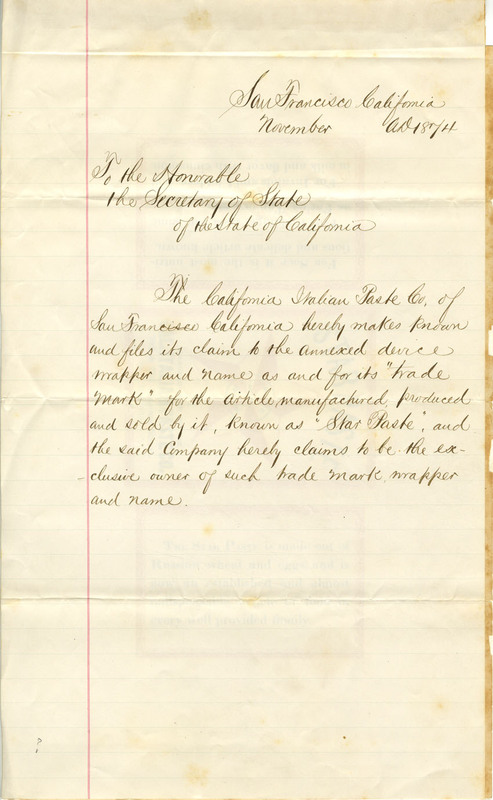 San Francisco California
November AD 1874
To the Honorable
the Secretary of State
of the State of California
The California Italian Paste Co. of
San Francisco California hereby makes known
and files its claim to the annexed device
wrapper and name as and for its "trade
mark" for the article, manufactured, produced
and sold by it, known as "Star Paste", and
the said Company hereby claims to be the ex-
clusive owner of such trade mark, wrapper
and name.